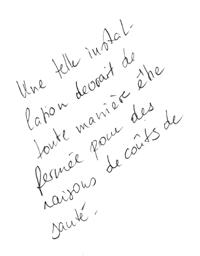 Une telle instal-
lation devrait de
toute manière être
fermée pour des
raisons de coûts de
santé.